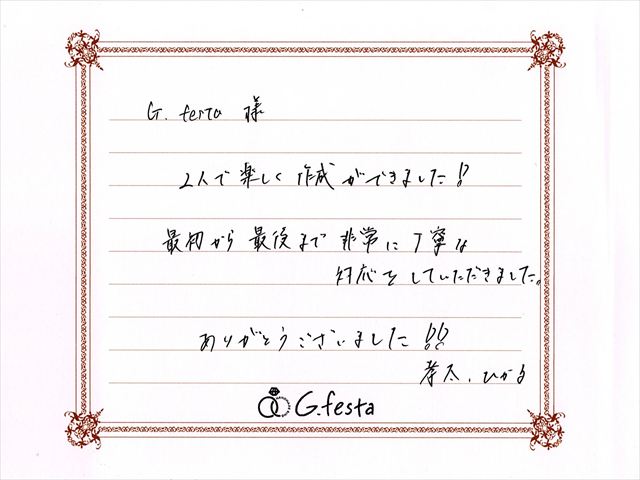 G. festa 様
2人で楽しく作成ができました!!
最初から最後まで非常に丁寧な
対応をしていただきました。
ありがとうございました!!
孝太、ひかる
G.festa